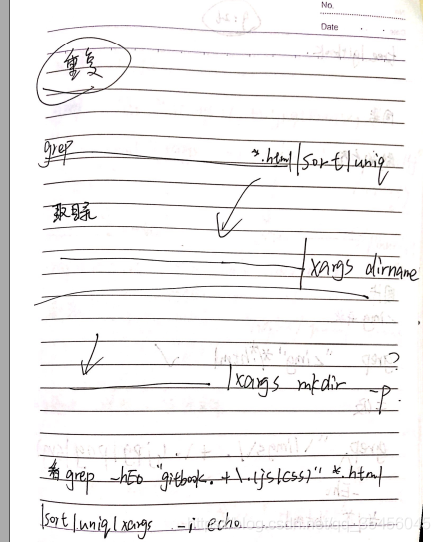 No.
Date
重复
grep *.html|sort|uniq
取目录
|xargs dirname
|xargs mkdir -p?
grep -hEo "gitbook.+\.(js|css)" *.html
|sort|uniq|xargs -i echo